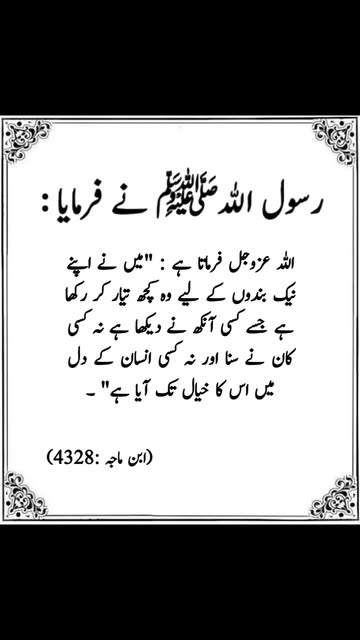 رسول اللہ ﷺ نے فرمایا :
اللہ عزوجل فرماتا ہے : "میں نے اپنے
نیک بندوں کے لیے وہ کچھ تیار کر رکھا
ہے جسے کسی آنکھ نے دیکھا ہے نہ کسی
کان نے سنا اور نہ کسی انسان کے دل
میں اس کا خیال تک آیا ہے" ۔
(ابن ماجہ :4328)